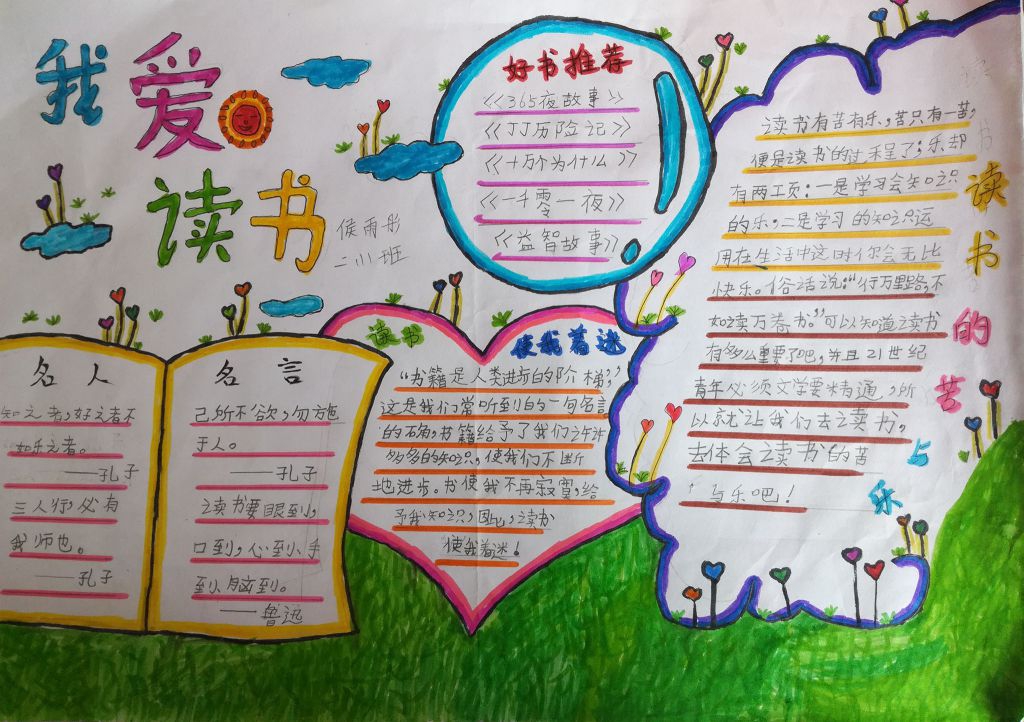 我爱
读书
侯雨彤
二小班
好书推荐
《365夜故事》
《JJ历险记》
《十万个为什么》
《一千零一夜》
《益智故事》
名人
知之者,好之者不
如乐之者。
——孔子
三人行,必有
我师也。
——孔子
名言
己所不欲,勿施
于人。
——孔子
读书要眼到,
口到,心到、手
到、脑到。
——鲁迅
读书 使我着迷
“书籍是人类进步的阶梯”,
这是我们常听到的一句名言
的确,书籍给予了我们许许
多多的知识,使我们不断
地进步。书使我不再寂寞,给
予我知识,因此,读书
使我着迷!
读书的苦与乐
读书有苦有乐,苦只有一苦,
便是读书的过程了;乐却
有两工页:一是学习会知识
的乐;二是学习的知识运
用在生活中这时你会无比
快乐。俗话说:“行万里路,不
如读万卷书。”可以知道读书
有多么重要了吧,并且21世纪
青年必须文学要精通,所
以就让我们去读书,
去体会读书的苦
与乐吧!